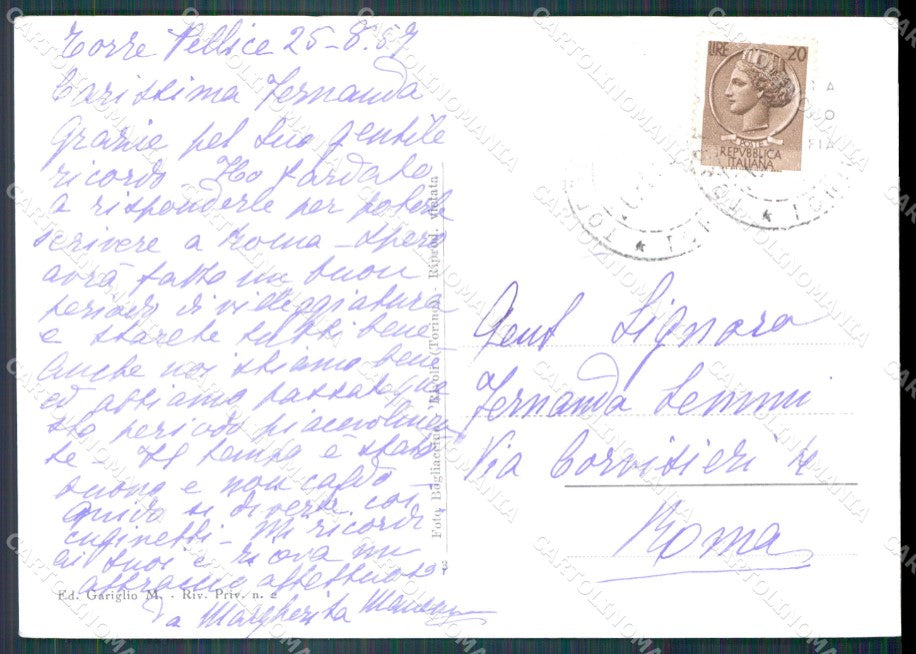 Torre Pellice 25-8.57
Carissima Fernanda
Grazie pel Suo gentile
ricordo Ho tardato
a risponderle per poterle
scrivere a Roma - Spero
avrà fatto un buon
periodo di villeggiatura
e starete tutti bene
Anche noi stiamo bene
ed abbiamo passato que
sto periodo piacevolmen
te - Il tempo è stato
buono e non caldo -
Guido si diverte coi
cuginetti - Mi ricordi
ai Suoi e riceva un
abbraccio affettuoso
da Margherita
Ed. Gariglio M. - Riv. Priv. n. 2
Foto Bogliaccino Rivoli (Torino) - Riprod. vietata
LIRE 20
POSTE
REPVBBLICA
ITALIANA
Gent Signora
Fernanda Lemmi
Via Corvisieri
Roma
CARTOLINOMANIA